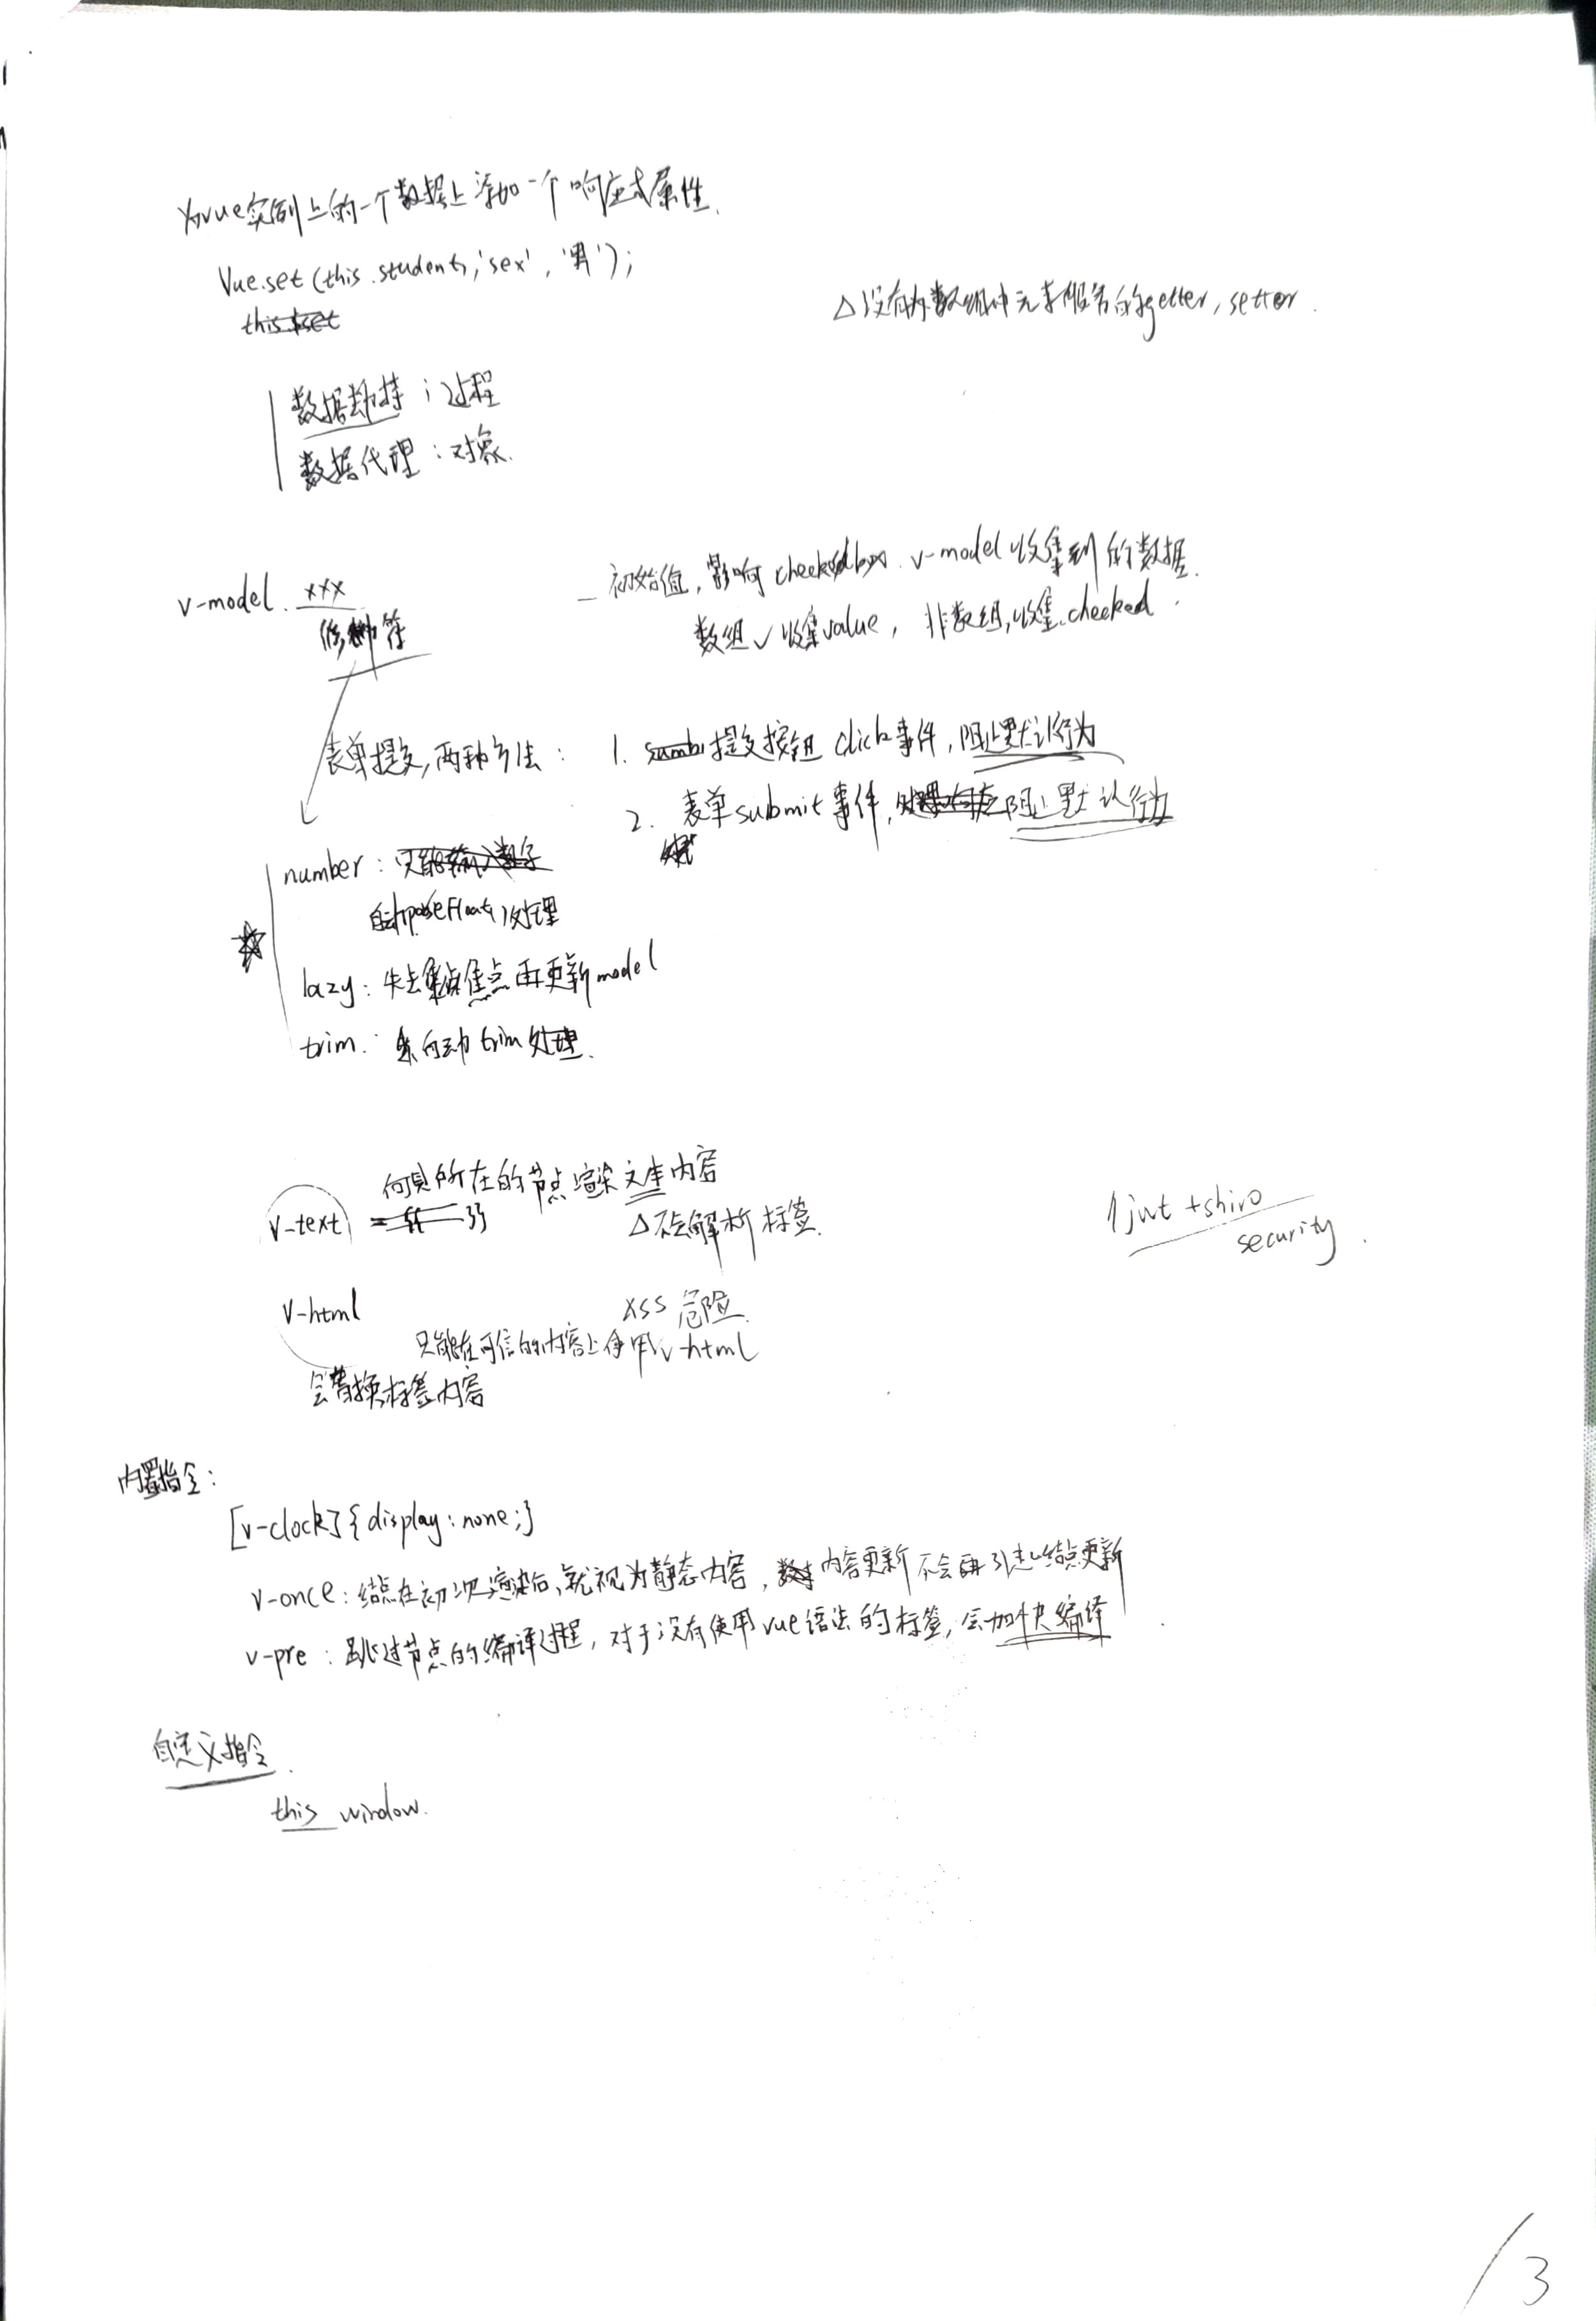 为vue实例上的一个数据上添加一个响应式属性.
Vue.set(this.student,'sex','男');
△没有为数组中元素服务的getter, setter.
数据劫持:过程
数据代理:对象.
v-model.xxx
修饰符
初始值,影响checkbox v-model收集到的数据.
数组✓收集value, 非数组,收集checked.
表单提交,两种方法:
1. 提交按钮 click事件,阻止默认行为
2. 表单submit事件, 阻止默认行为
number:
自动parseFloat()处理
lazy: 失去焦点再更新model
trim: 自动trim处理.
v-text
向其所在的节点渲染文本内容
△不会解析标签.
jwt +shiro
security.
v-html
XSS 危险.
只能在可信的内容上使用v-html
会替换标签内容
内置指令:
[v-clock]{display:none;}
v-once: 结点在初次渲染后,就视为静态内容, 内容更新不会再引起结点更新
v-pre: 跳过节点的编译过程, 对于没有使用vue语法的标签, 会加快编译.
自定义指令.
this window.
/3